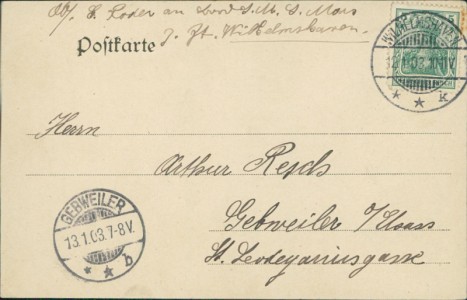 Abs. L. Loder an Bord S.M.S. Mars
Postkarte
z. Zt. Wilhelmshaven
WILHELMSHAVEN
1.03.10-11V.
* * k
Herrn
Arthur Resch
Gebweiler i/Elsass
St. Leodegariusgasse
GEBWEILER
13.1.03.7-8V.
* * b